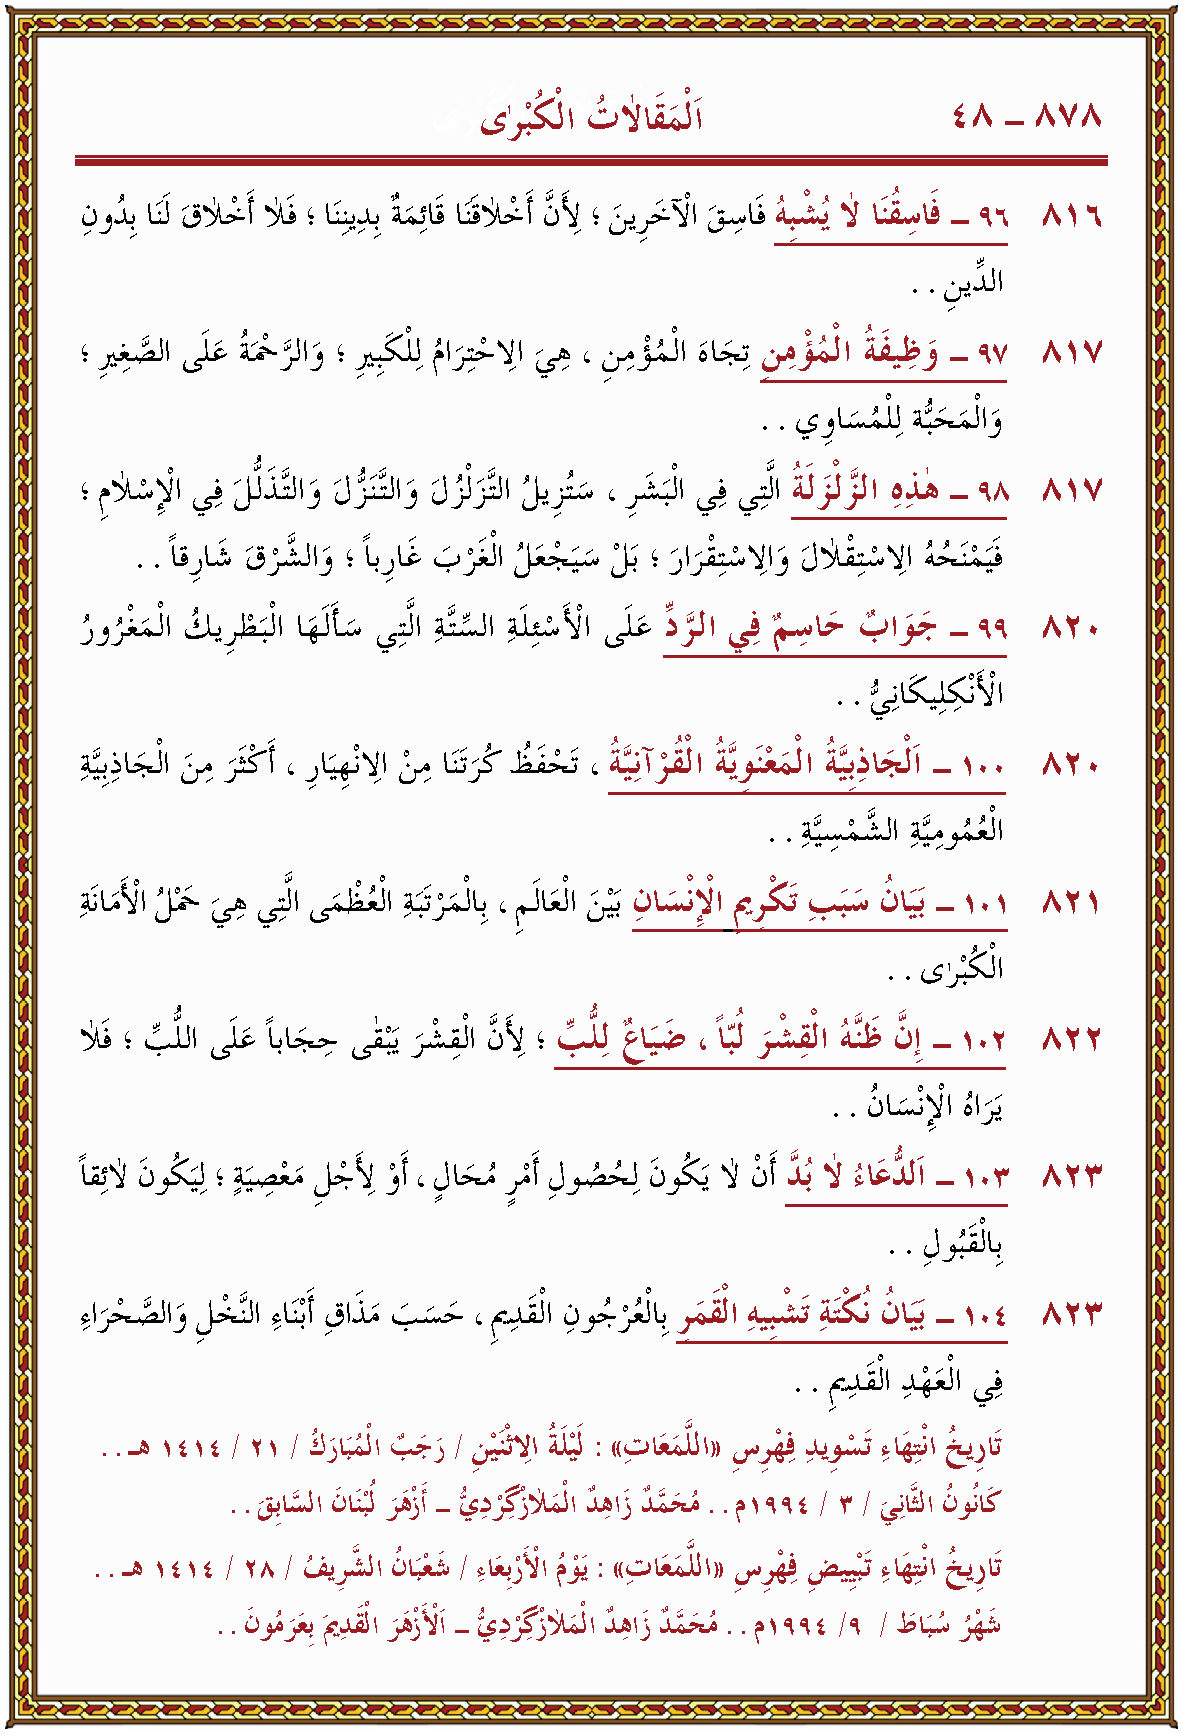 ٨٧٨ ـ ٤٨ اَلْمَقَالَاتُ الْكُبْرٰى
٨١٦ ٩٦ ـ فَاسِقُنَا لَا يُشْبِهُ فَاسِقَ الْآخَرِينَ ؛ لِأَنَّ أَخْلَاقَنَا قَائِمَةٌ بِدِينِنَا ؛ فَلَا أَخْلَاقَ لَنَا بِدُونِ
الدِّينِ . .
٨١٧ ٩٧ ـ وَظِيفَةُ الْمُؤْمِنِ تِجَاهَ الْمُؤْمِنِ ، هِيَ الِاحْتِرَامُ لِلْكَبِيرِ ؛ وَالرَّحْمَةُ عَلَى الصَّغِيرِ ؛
وَالْمَحَبُّة لِلْمُسَاوِي . .
٨١٧ ٩٨ ـ هٰذِهِ الزَّلْزَلَةُ الَّتِي فِي الْبَشَرِ ، سَتُزِيلُ التَّزَلْزُلَ وَالتَّنَزُّلَ وَالتَّذَلُّلَ فِي الْإِسْلَامِ ؛
فَيَمْنَحُهُ الِاسْتِقْلَالَ وَالِاسْتِقْرَارَ ؛ بَلْ سَيَجْعَلُ الْغَرْبَ غَارِباً ؛ وَالشَّرْقَ شَارِقاً . .
٨٢٠ ٩٩ ـ جَوَابٌ حَاسِمٌ فِي الرَّدِّ عَلَى الْأَسْئِلَةِ السِّتَّةِ الَّتِي سَأَلَهَا الْبَطْرِيكُ الْمَغْرُورُ
الْأَنْكِلِيكَانِيُّ . .
٨٢٠ ١٠٠ ـ اَلْجَاذِبِيَّةُ الْمَعْنَوِيَّةُ الْقُرْآنِيَّةُ ، تَحْفَظُ كُرَتَنَا مِنْ الِانْهِيَارِ ، أَكْثَرَ مِنَ الْجَاذِبِيَّةِ
الْعُمُومِيَّةِ الشَّمْسِيَّةِ . .
٨٢١ ١٠١ ـ بَيَانُ سَبَبِ تَكْرِيمِ الْإِنْسَانِ بَيْنَ الْعَالَمِ ، بِالْمَرْتَبَةِ الْعُظْمَى الَّتِي هِيَ حَمْلُ الْأَمَانَةِ
الْكُبْرٰى . .
٨٢٢ ١٠٢ ـ إِنَّ ظَنَّهُ الْقِشْرَ لُبّاً ، ضَيَاعٌ لِلُّبِّ ؛ لِأَنَّ الْقِشْرَ يَبْقٰى حِجَاباً عَلَى اللُّبِّ ؛ فَلَا
يَرَاهُ الْإِنْسَانُ . .
٨٢٣ ١٠٣ ـ اَلدُّعَاءُ لَا بُدَّ أَنْ لَا يَكُونَ لِحُصُولِ أَمْرٍ مُحَالٍ ، أَوْ لِأَجْلِ مَعْصِيَةٍ ؛ لِيَكُونَ لَائِقاً
بِالْقَبُولِ . .
٨٢٣ ١٠٤ ـ بَيَانُ نُكْتَةِ تَشْبِيهِ الْقَمَرِ بِالْعُرْجُونِ الْقَدِيمِ ، حَسَبَ مَذَاقِ أَبْنَاءِ النَّخْلِ وَالصَّحْرَاءِ
فِي الْعَهْدِ الْقَدِيمِ . .
تَارِيخُ انْتِهَاءِ تَسْوِيدِ فِهْرِسِ «اللَّمَعَاتِ» : لَيْلَةُ الِاثْنَيْنِ / رَجَبٌ الْمُبَارَكُ / ٢١ / ١٤١٤ هـ . .
كَانُونُ الثَّانِيَ / ٣ / ١٩٩٤م . . مُحَمَّدٌ زَاهِدٌ الْمَلَازْكِرْدِيُّ ـ أَزْهَرَ لُبْنَانَ السَّابِقَ . .
تَارِيخُ انْتِهَاءِ تَبْيِيضِ فِهْرِسِ «اللَّمَعَاتِ» : يَوْمُ الْأَرْبِعَاءِ / شَعْبَانُ الشَّرِيفُ / ٢٨ / ١٤١٤ هـ . .
شَهْرُ سُبَاطَ / ٩/ ١٩٩٤م . . مُحَمَّدٌ زَاهِدٌ الْمَلَازْكِرْدِيُّ ـ اَلْأَزْهَرَ الْقَدِيمَ بِعَرَمُونَ . .